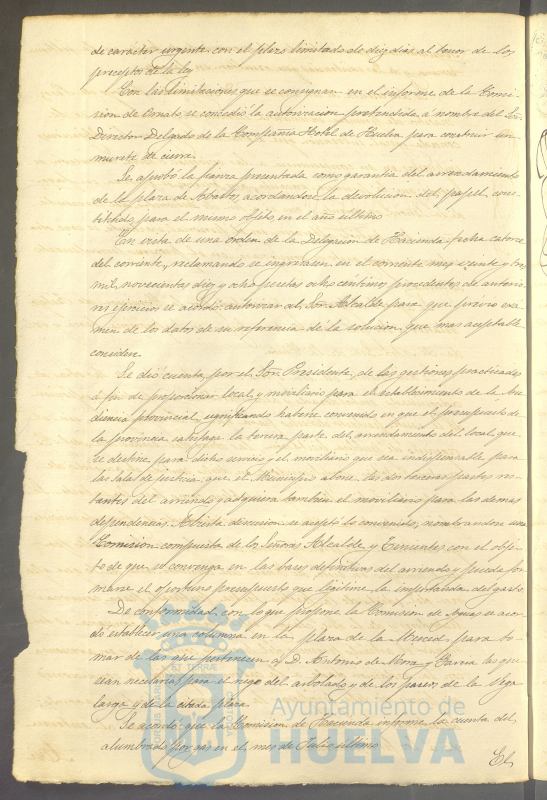 de carácter urgente con el plazo limitado de diez dias al tenor de los
preceptos de la ley
Con las limitaciones que se consignan en el informe de la Comi-
sion de Ornato se concedió la autorizacion pretendida á nombre del Sor.
Director Delegado de la Compañia Hotel de Huelva para construir un
murete de cierre.
Se aprobó la fianza presentada como garantia del arrendamiento
de la plaza de Abastos, acordandose la devolucion del papel cons-
tituido para el mismo objeto en el año último
En vista de una orden de la Delegacion de Hacienda fecha catorce
del corriente, reclamando se ingresasen en el corriente mes veinte y tres
mil novecientas diez y ocho pesetas ocho centimos procedentes de anterio-
res ejercicios se acordó autorizar al Sor. Alcalde para que previo exá-
men de los datos de su referencia de la solucion que mas aceptable
considere.
Se dió cuenta por el Sor. Presidente, de las gestiones practicadas
á fin de proporcionar local y moviliario para el establecimiento de la Au-
diencia provincial, significando haberse convenido en que el presupuesto de
la provincia satisfaga la tercera parte del arrendamiento del local que
se destine para dicho servicio y el moviliario que sea indispensable para
las Salas de justicia, que el Municipio abone las dos terceras partes res-
tantes del arriendo y adquiera tambien el moviliario para las demas
dependencias. Abierta discusion se aceptó lo convenido, nombrandose una
Comision compuesta de los Señores Alcalde y Tenientes con el obje-
to de que se convenga en las bases definitivas del arriendo y pueda for-
marse el oportuno presupuesto que legitime la importancia del gasto.
De conformidad con lo que propone la Comision de Aguas se acor-
dó establecer una columna en la plaza de la Merced para to-
mar de las que pertenecen a D. Antonio de Mora y Garcia las que
sean necesarias para el riego del arbolado y de los paseos de la Vega
larga y de la citada plaza.
Se acordó que la Comision de Hacienda informe la cuenta del
alumbrado por gas en el mes de Julio último
El
Ayuntamiento de
HUELVA